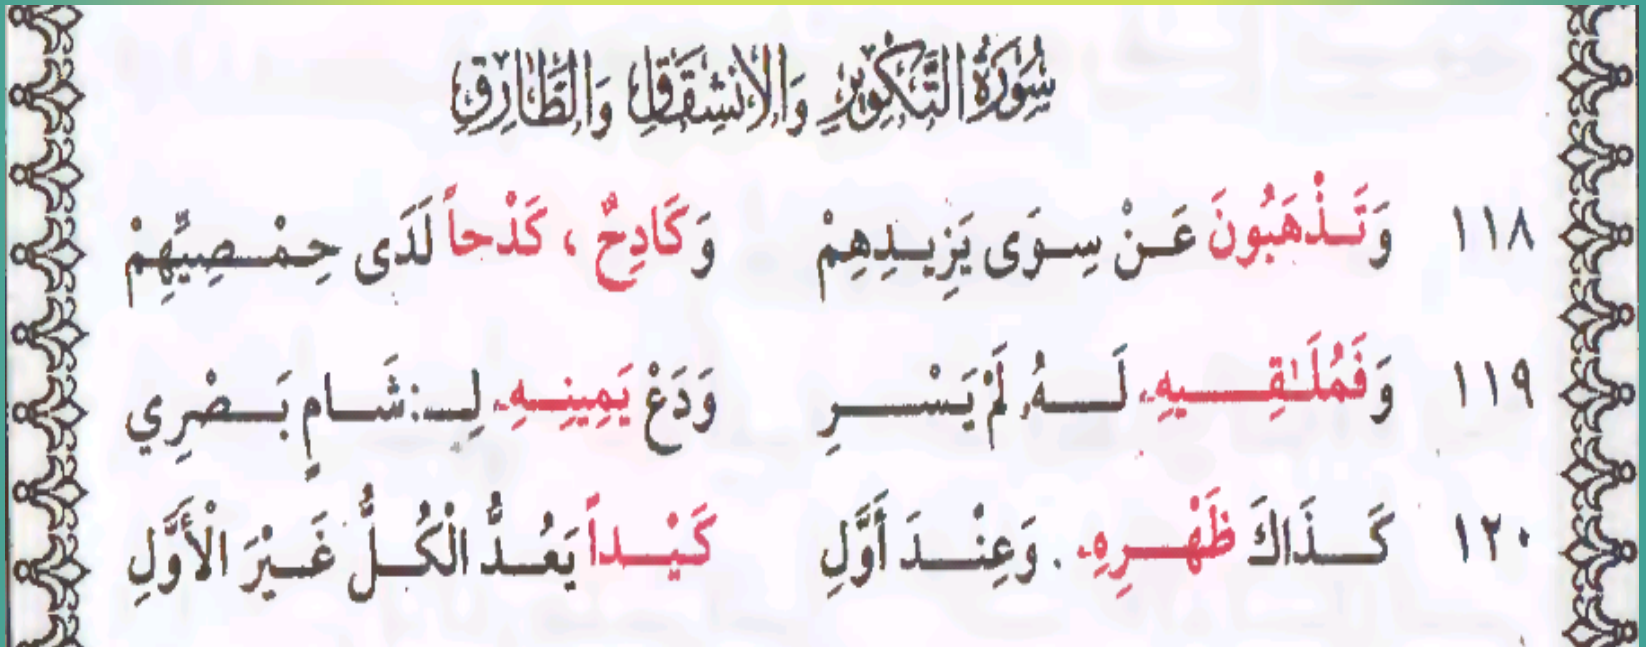 سُورَةُ التَّكْوِيرِ وَالِانْشِقَاقِ وَالطَّارِقِ
١١٨ وَتَذْهَبُونَ عَنْ سِوَى يَزِيدِهِمْ وَكَادِحٌ ، كَدْحاً لَدَى حِمْصِيِّهِمْ
١١٩ وَفَمُلَـٰقِيهِ لَهُ لَمْ يَسْرِ وَدَعْ يَمِينِهِ لِـ: شَامٍ بَصْرِي
١٢٠ كَذَاكَ ظَهْرِهِ . وَعِنْدَ أَوَّلِ كَيْداً يَعُدُّ الْكُلُّ غَيْرَ الْأَوَّلِ